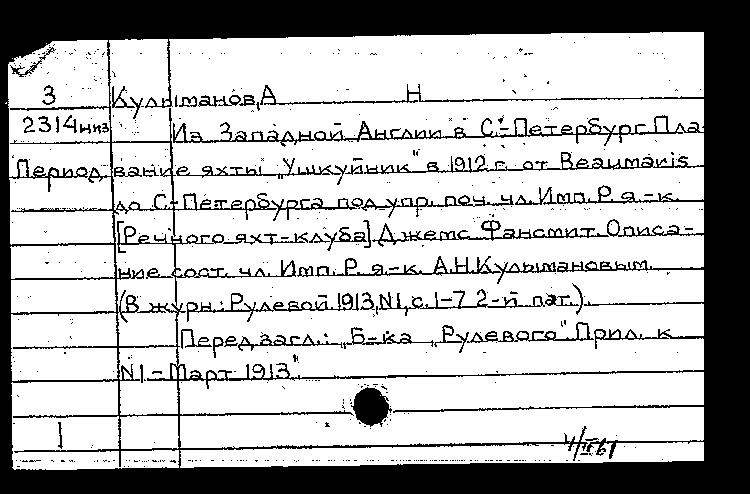 З Кулыманов, А Н
2314 низ Из Западной Англии в С.-Петербург. Пла-
Период. вание яхты „Ушкуйник" в 1912 г. от Beaumaris
до С.-Петербурга под упр. поч. чл. Имп. Р. я.-к.
[Речного яхт-клуба] Джемс Фансмит. Описа-
ние сост. чл. Имп. Р. я.-к. А.Н. Кулымановым.
(В журн.: Рулевой. 1913, N1, с. 1-7 2-й паг.).
Перед загл.: „Б-ка „Рулевого". Прил. к
N1 - Март 1913".
1
4/II 61